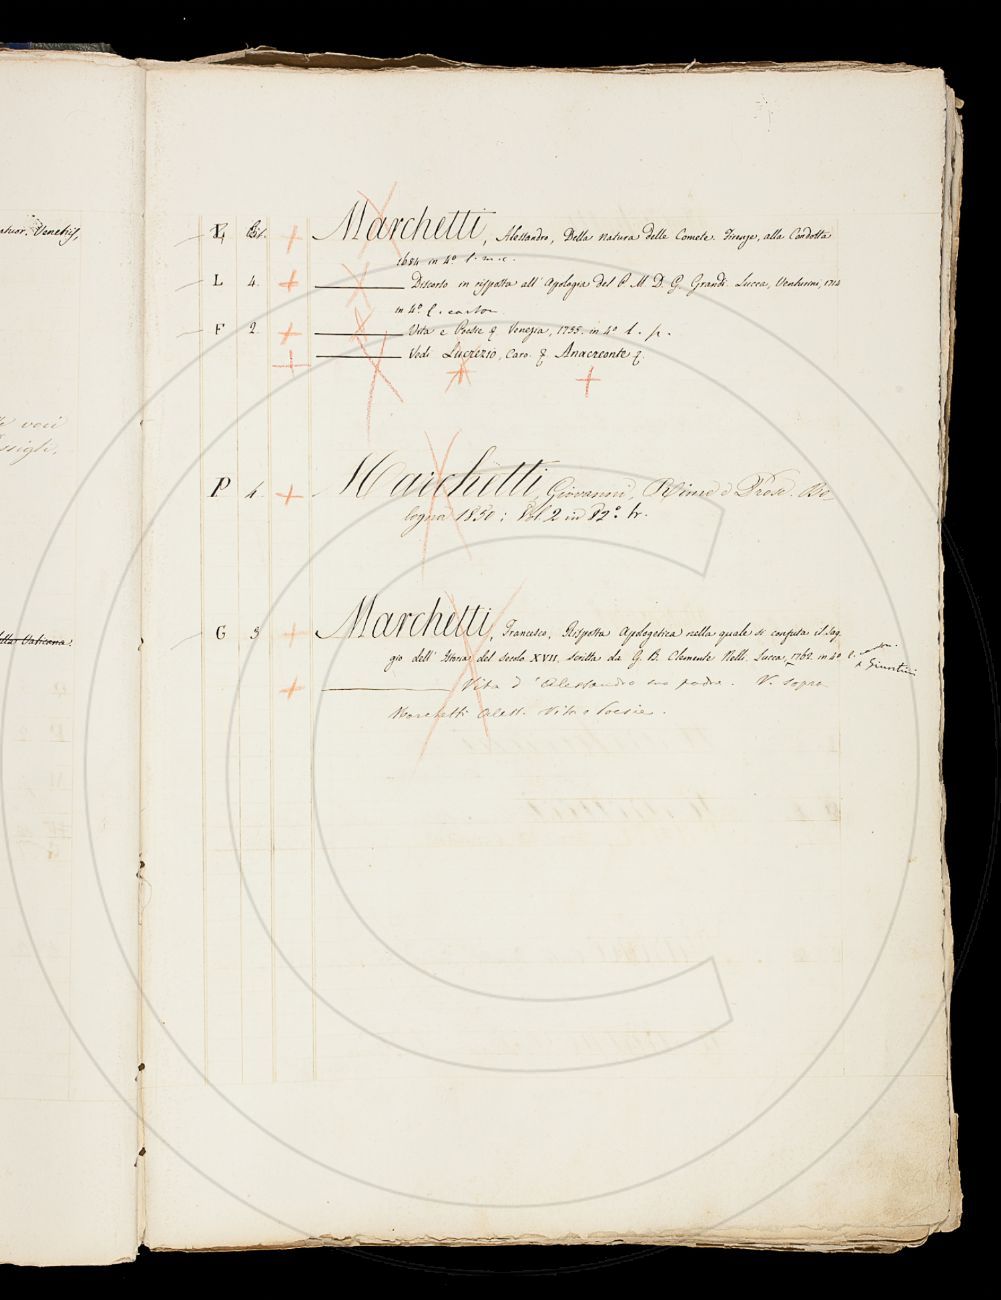 Venetijs,
voci
ssigli,
Vaticana.
Marchetti, Alessandro, Della natura delle Comete. Firenze, alla Condotta
1684 in 4º l. m. c.
L 4. Discorso in risposta all' Apologia del P. M. D. G. Grandi. Lucca, Venturini, 1714
in 4º l. carton
F 2. Vita e Poesie &. Venezia, 1755. in 4º l. p.
Vedi Lucrezio, Caro. &. Anacreonte &.
P 4. Marchetti, Giovanni, Rime e Prose. Bo-
logna 1850: Vol 2 in 12º br.
G 5 Marchetti, Francesco, Risposta Apologetica nella quale si confuta il Sag-
gio dell' Storia del secolo XVII. scritta da G. B. Clemente Nelli. Lucca, 1762. in 4º l.
e Giuntini
Vita d' Alessandro suo padre. V. sopra
Marchetti Aless. Vita e Poesie.